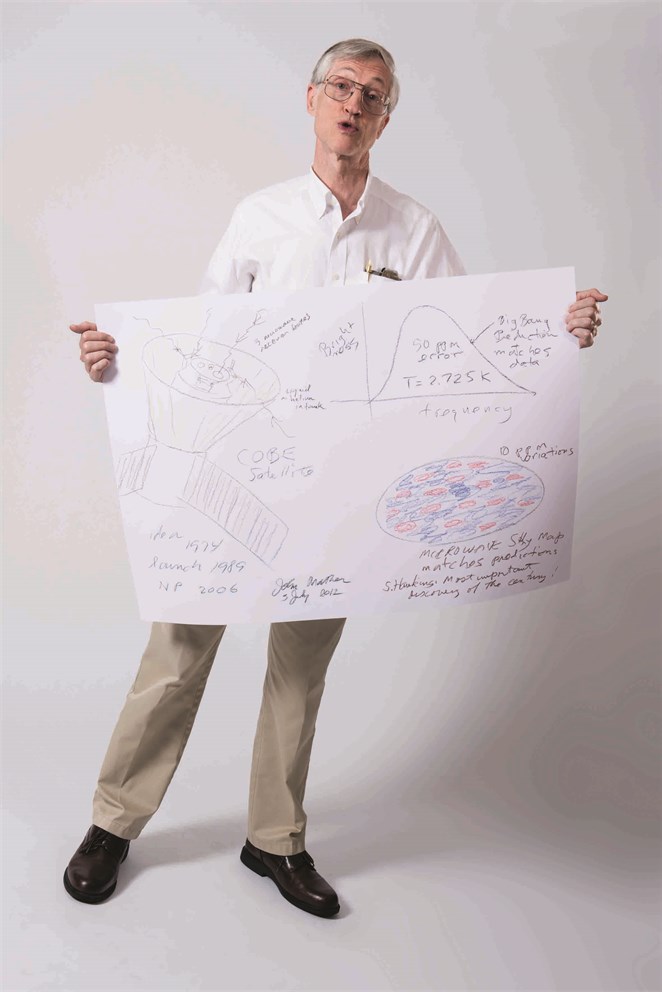 9 microwave
receiver horns
liquid
helium
in tank
COBE
Satellite
idea 1974
launch 1989
NP 2006
John Mather
5 July 2012
Bright
50 ppm
error
T = 2.725 K
frequency
Big Bang
Prediction
matches
data
10 ppm
variations
MICROWAVE Sky Map
matches predictions
S. Hawking: Most important
discovery of the century!